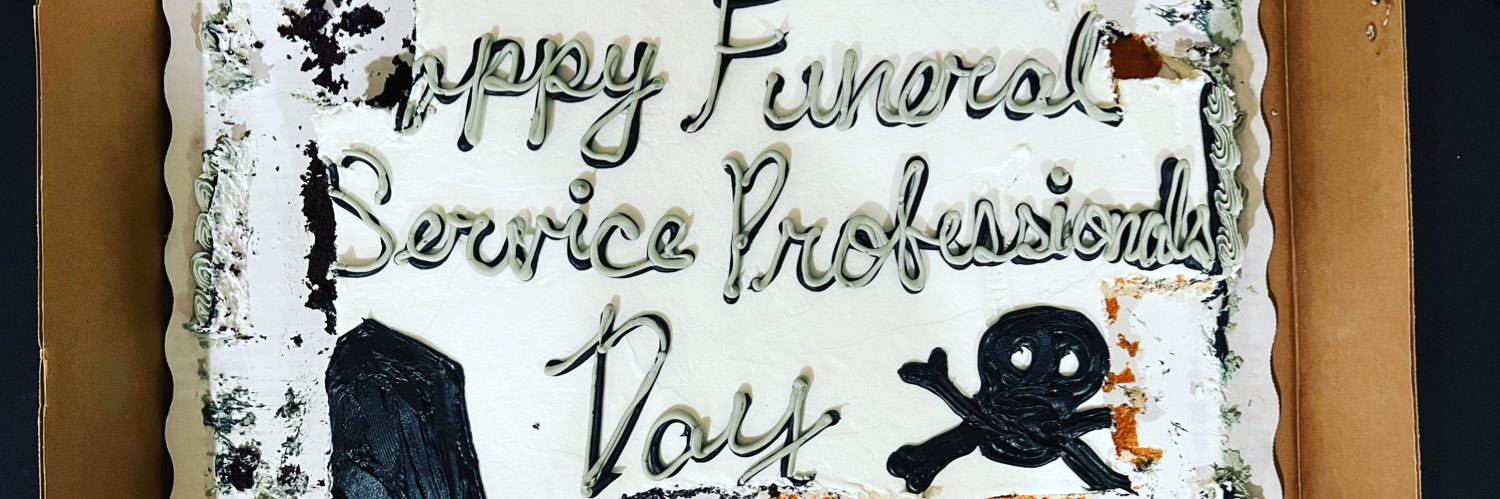 appy Funeral
Service Professionals
Day